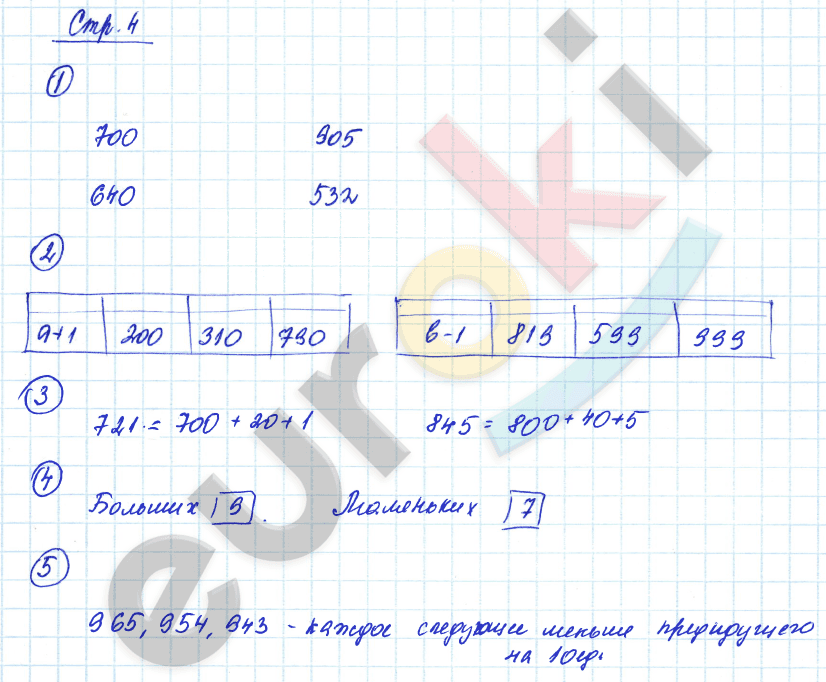 Стр. 4
1
700 905
640 532
2
a+1 200 310 790
в-1 819 599 999
3
721 = 700 + 20 + 1 845 = 800 + 40 + 5
4
Больших 9. Маленьких 7
5
965, 954, 943 - каждое следующее меньше предидущего
на 10ед.
euroki